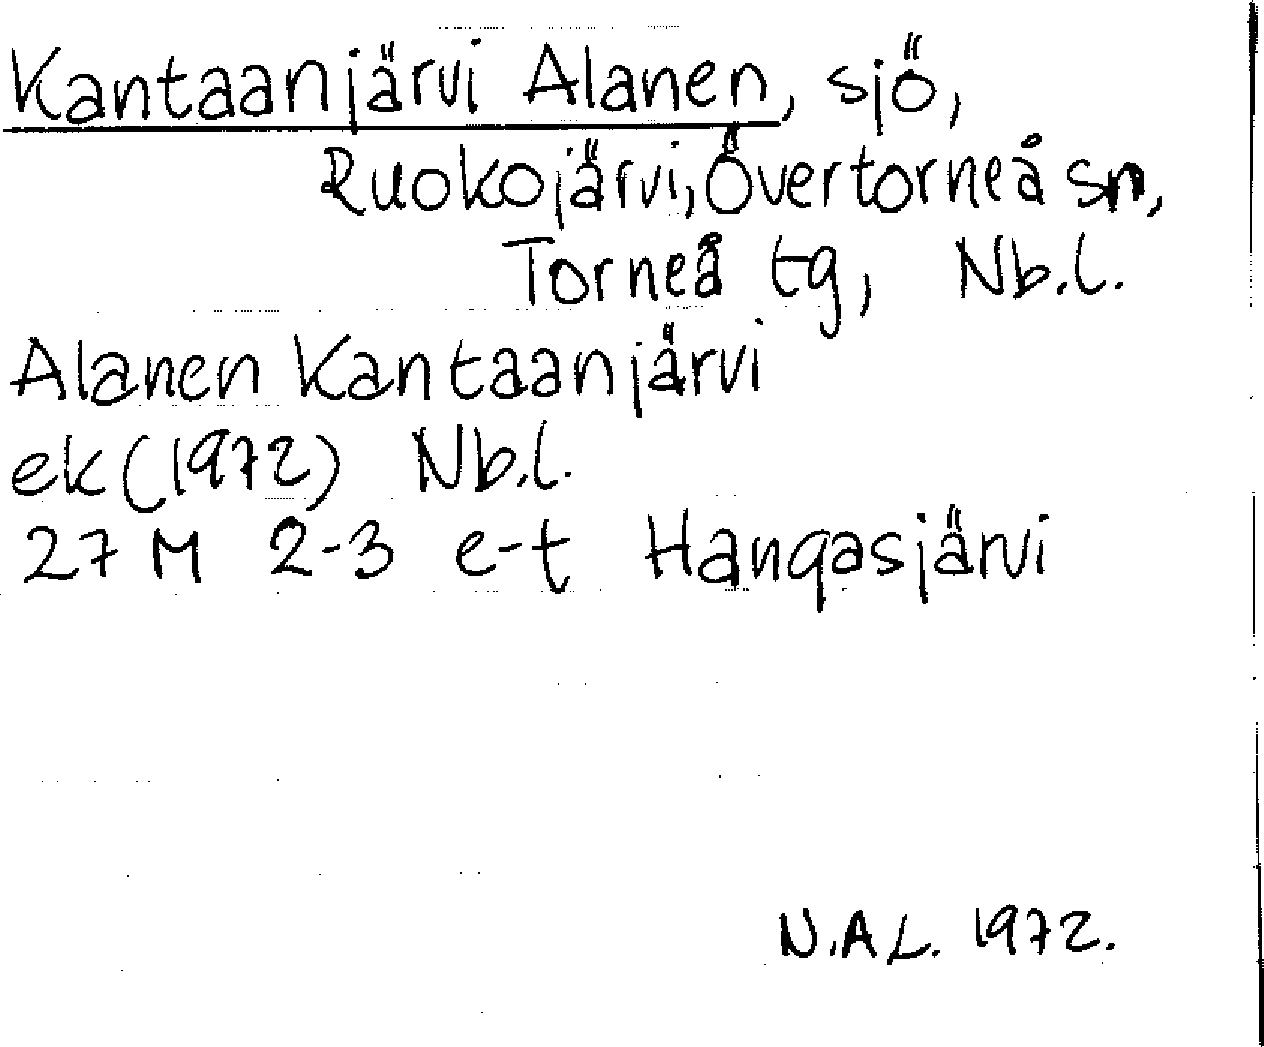 Kantaanjärvi Alanen, sjö,
Ruokojärvi, Övertorneå sn,
Torneå tg, Nb.l.
Alanen Kantaanjärvi
ek (1972) Nb.l.
27 M 2-3 e-t Hangasjärvi
N.A L. 1972.